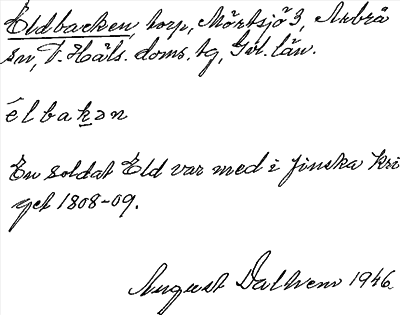 Eldbacken, torp, Mörtsjö 3, Arbrå
sn, V. Häls. doms. tg, Gvl. län.
élbakən
En soldat Eld var med i finska kri
get 1808-09.
August Dalhem 1946